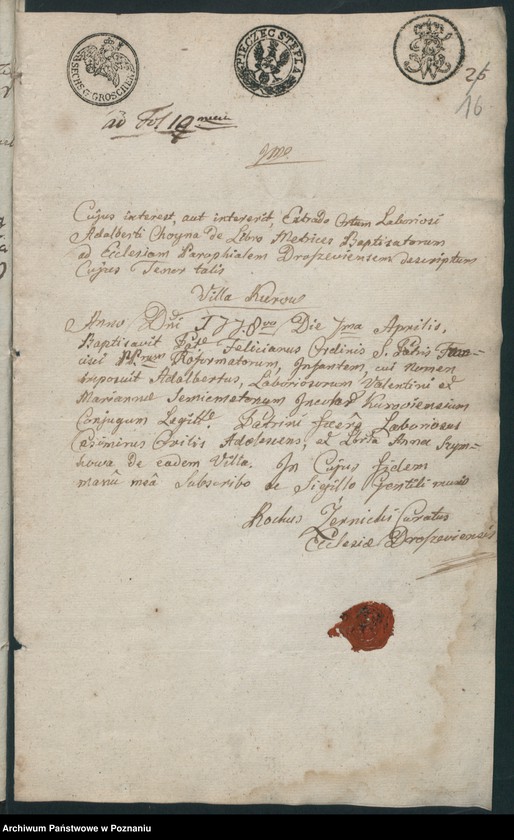 SECHS G. GROSCHEN
PIECZĘC STĘPLA
25
16
ad Fol 19
Cujus interest, aut intererit, Extrado Ortum Laboriosi
Adalberti Choyna de Libro Metrices Baptisatorum
ad Ecclesiam Parophialem Droszeviensem descriptum
Cujus Tenor talis
Villa Kurow
Anno Dni 1778vo Die 7ma Aprilis,
Baptisavit Felicianus Ordinis S. Patris Fran=
cisci Reformatorum, Infantem, cui nomen
imposuit Adalbertus, Laboriosorum Valentini et
Mariannae Incolar Kuroviensium
Conjugum Legit. Patrini fuere Laboriosus
Casimirus Adolescens, et Anna Szym=
kowa de eadem Villa. In Cujus fidem
manu mea Subscribo ac Sigillo Gentili munio
Rochus Zernicki Curatus
Ecclesiæ Droszeviensis
Archiwum Państwowe w Poznaniu